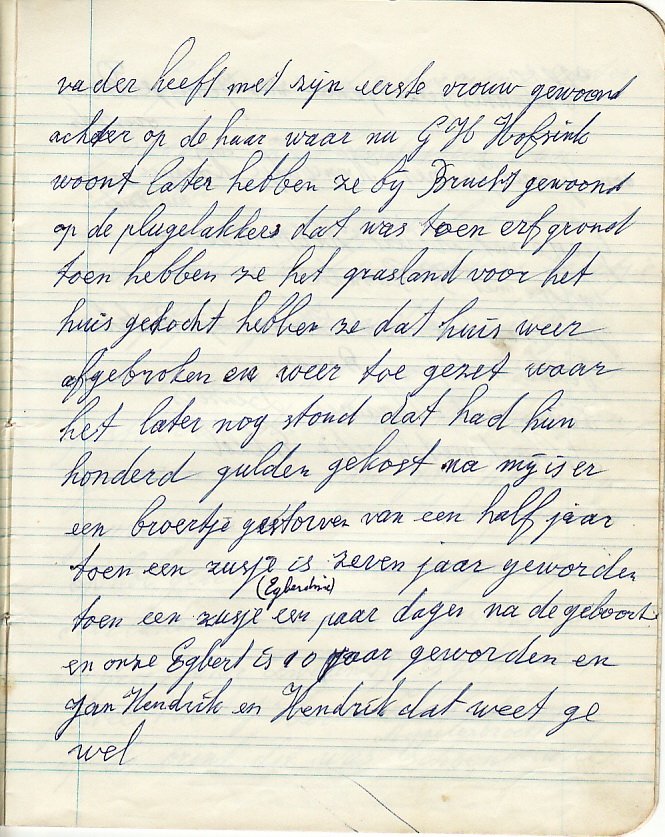 vader heeft met zijn eerste vrouw gewoond
achter op de haar waar nu G H Hofsink
woont later hebben ze bij Brucht gewoond
op de plugelakkers dat was toen erfgrond
toen hebben ze het grasland voor het
huis gekocht hebben ze dat huis weer
afgebroken en weer toe gezet waar
het later nog stond dat had hun
honderd gulden gekost na mij is er
een broertje gestorven van een half jaar
toen een zusje is zeven jaar geworden
(Egberdina)
toen een zusje een paar dagen na de geboorte
en onze Egbert is 10 jaar geworden en
Jan Hendrik en Hendrik dat weet ge
wel